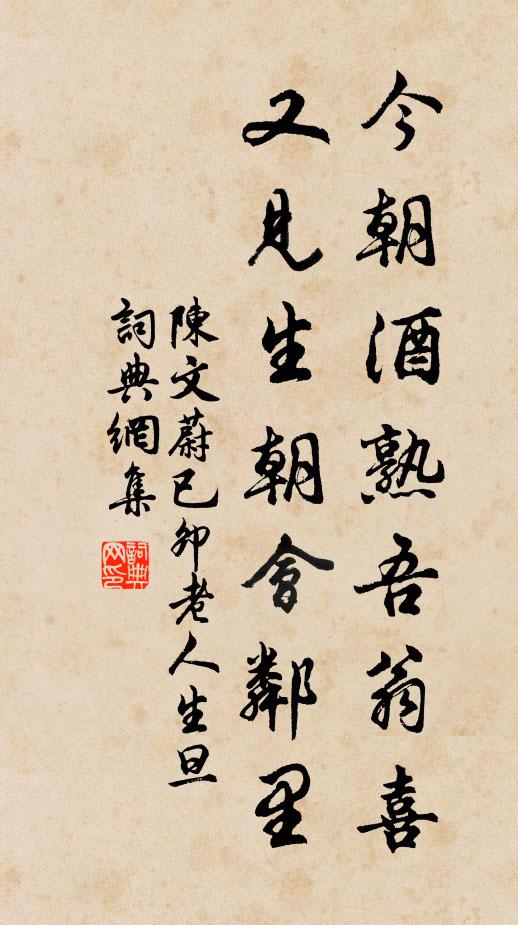 今朝酒熟吾翁喜
又見生朝會鄰里
陳文蔚已卯老人生旦
詞典網集
詞典网印